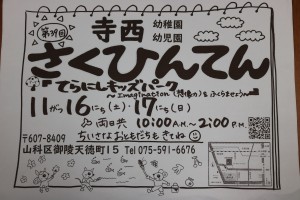 第39回 寺西 幼稚園 幼児園
さくひんてん
てらにしキッズパーク
〜Imagination(想像力)をふくらませよう〜
11がつ16にち(土)・17にち(日)
両日共 10:00A.M.〜2:00P.M.
ちいさなおともだちもきてね
〒607-8409
山科区御陵天徳町15 Tel 075-591-6676